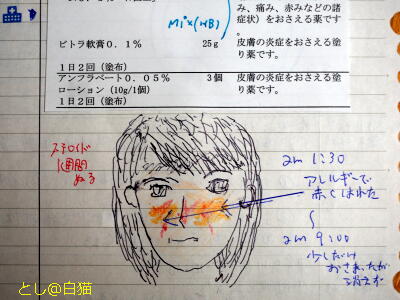 み、痛み、赤みなどの諸
症状)をおさえる薬です。
Mix(HB)
ビトラ軟膏0.1% 25g 皮膚の炎症をおさえる塗
り薬です。
1日2回(塗布)
アンフラベート0.05% 3個 皮膚の炎症をおさえる塗
ローション(10g/1個) り薬です。
1日2回(塗布)
ステロイド
1週間
ぬる
am 1:30
アレルギーで
赤くはれた
am 9:00
少しだけ
おさまったが
消えず
とし@白猫